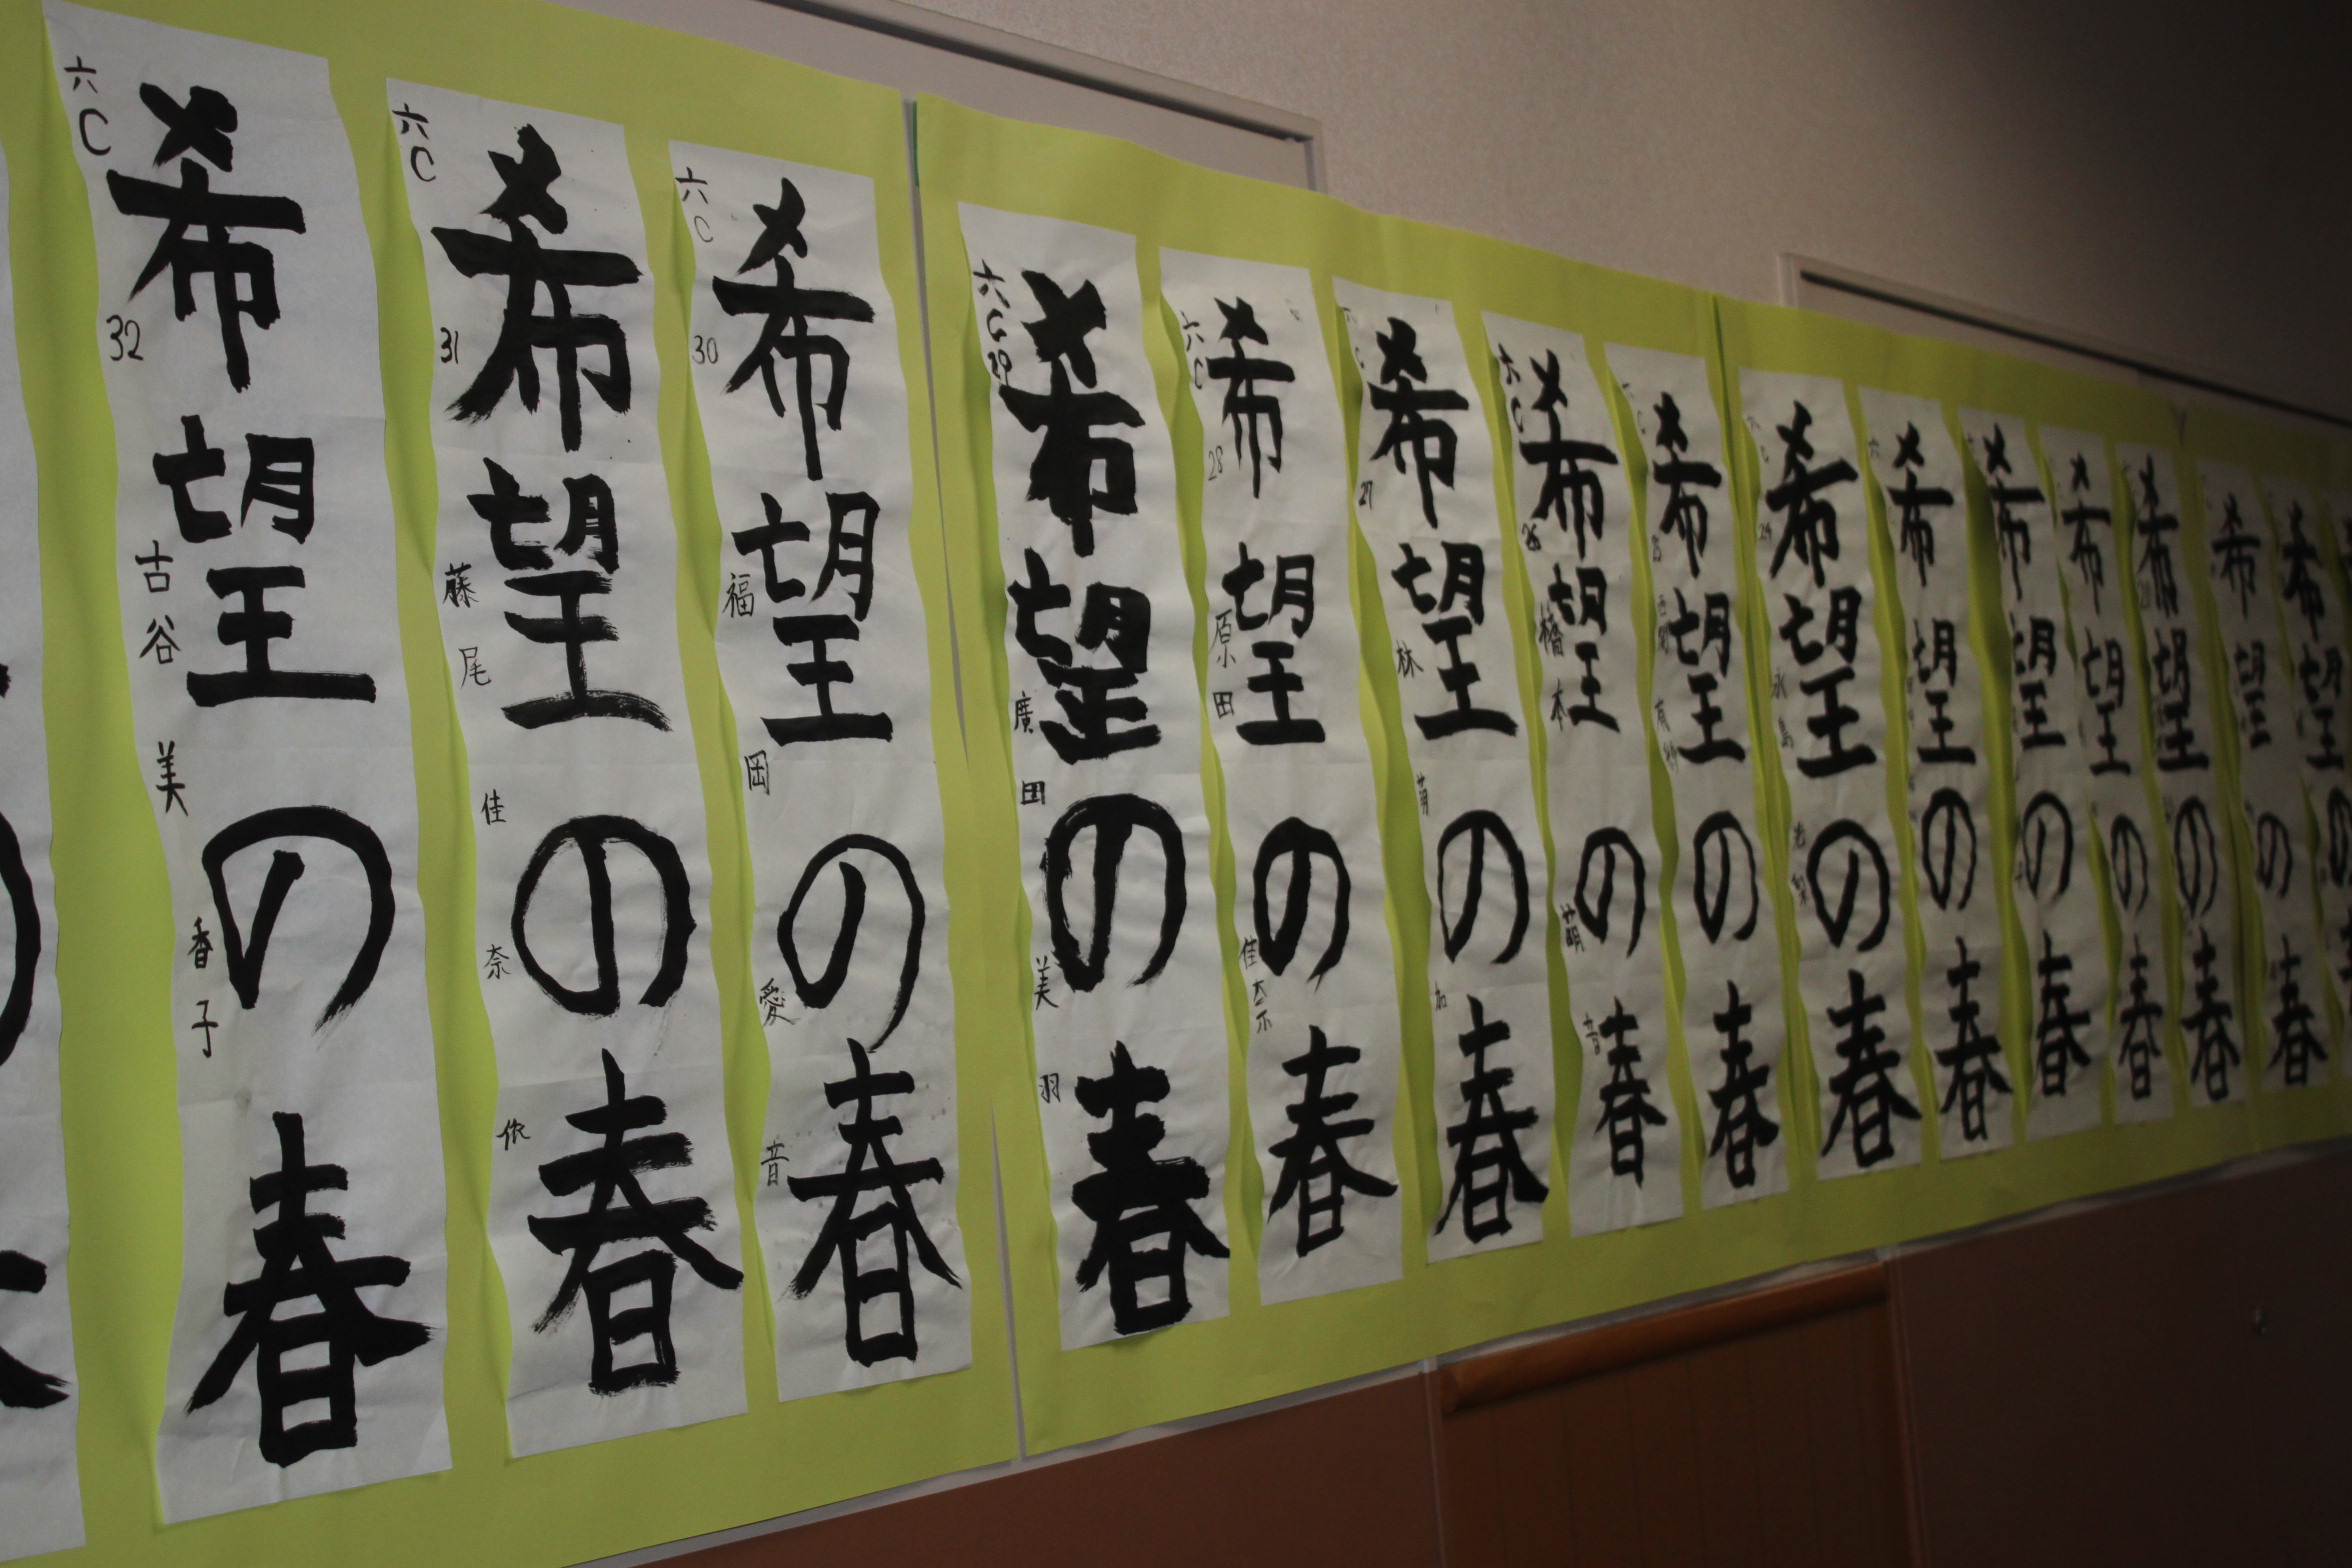 六C
32
古谷 美香子
希望の春
六C
31
藤尾 佳奈依
希望の春
六C
30
福岡 愛音
希望の春
六C
29
廣田 美羽
希望の春
六C
28
原田 佳奈
希望の春
27
林 萌加
希望の春
六C
26
橋本 萌音
希望の春
25
希望の春
24
永島
希望の春
希望の春
希望の春
希望の春
希望の春
希望の春
希望の